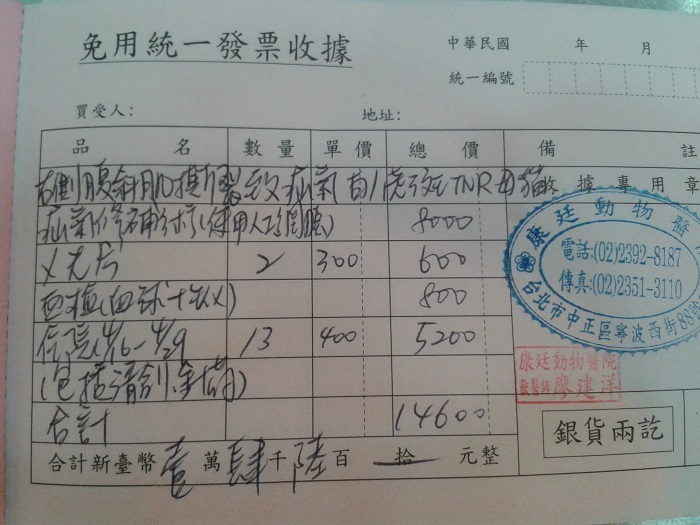 免用統一發票收據
中華民國 年 月
統一編號
買受人: 地址:
品 名 數量 單價 總價 備 註
右側腹斜肌撕裂致疝氣(白/虎斑TNR母貓
收據專用章
疝氣修補術(使用人工網膜) 8000
X光片 2 300 600
血檢(血球十生化) 800
住院4/16-4/29 13 400 5200
(包括清創、
合計 14600
合計新臺幣壹萬肆千陸百拾元整
康廷動物醫
電話:(02)2392-8187
傳真:(02)2351-3110
台北市中正區寧波西街88號
康廷動物醫院
獸醫師 廖建洋
銀貨兩訖